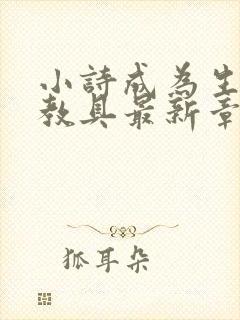 小詩成為生
教具最新章
狐耳朵